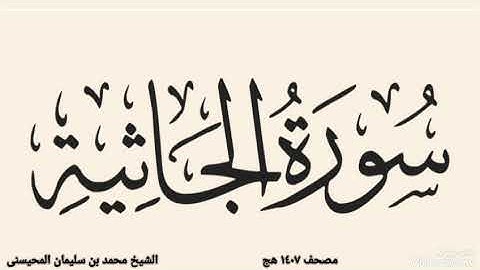 سُورَةُ الجَاثِيَةِ
مصحف ١٤٠٧ هج
الشيخ محمد بن سليمان المحيسنى